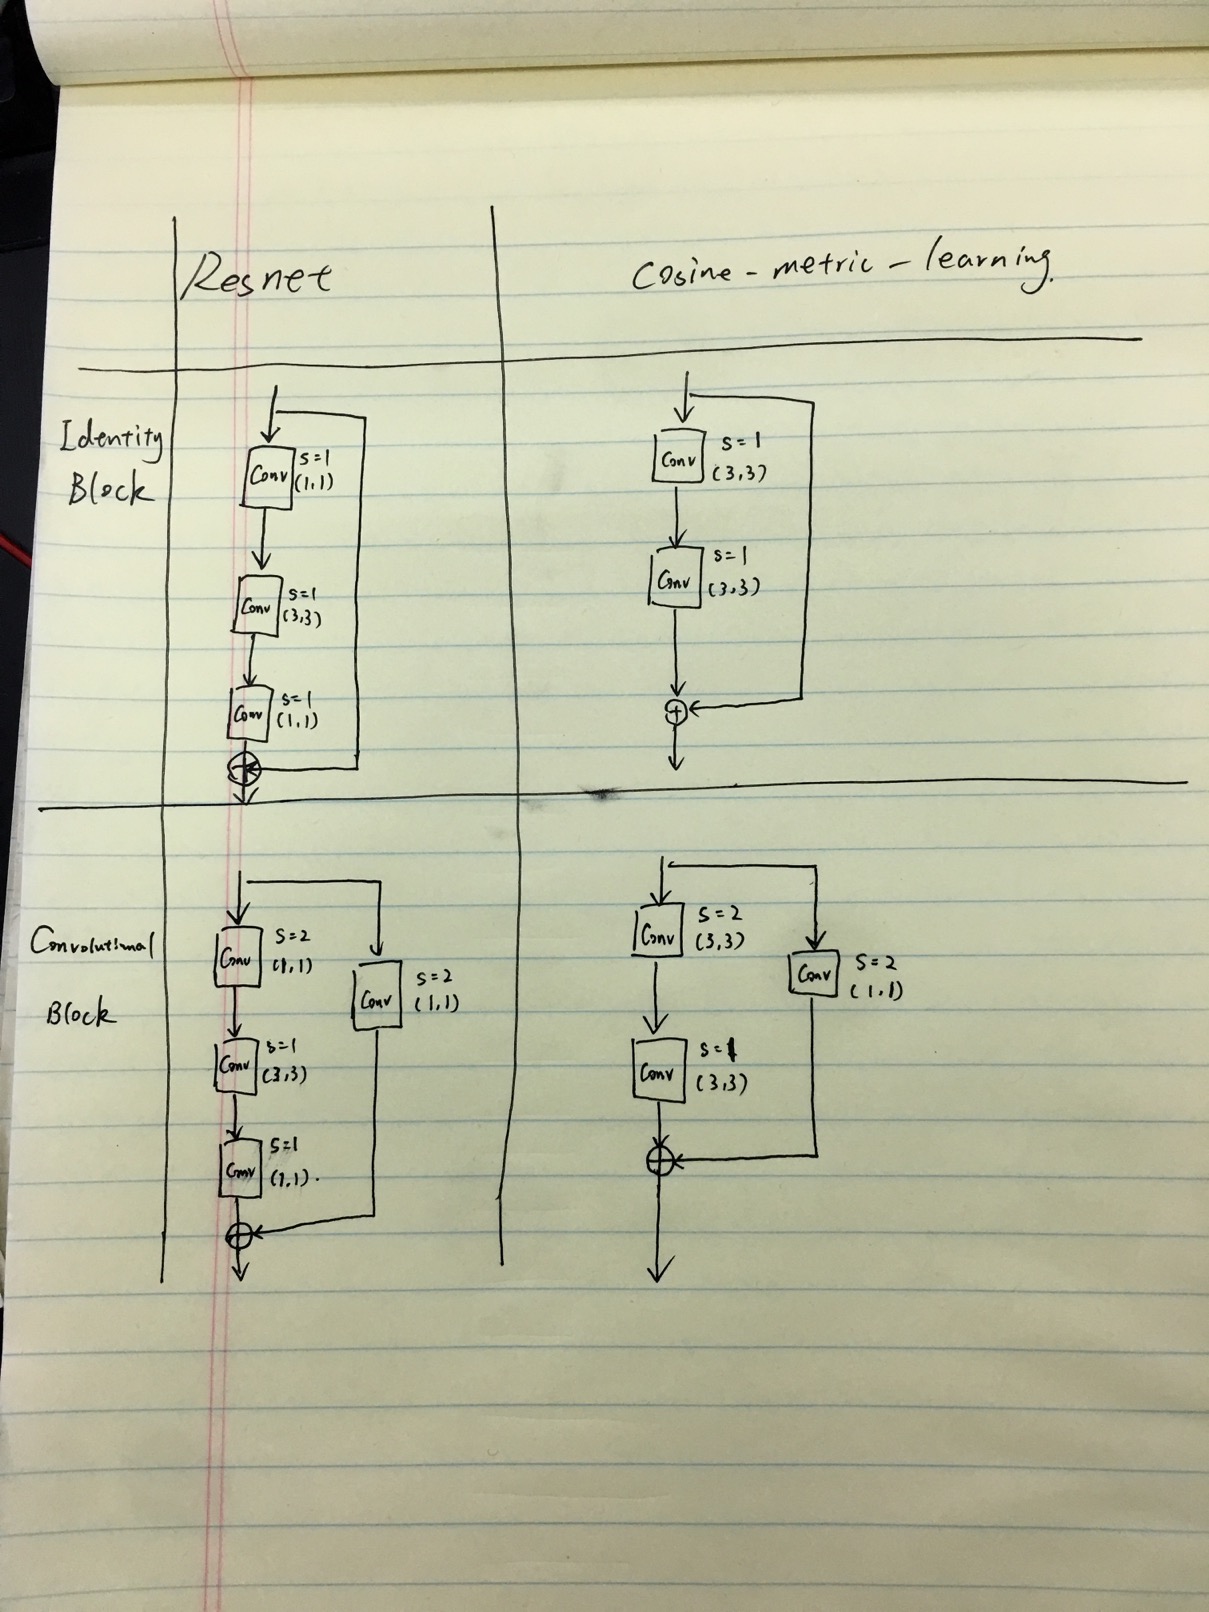 Resnet
Cosine - metric - learning.
Identity
Block
Conv
s=1
(1,1)
Conv
s=1
(3,3)
Conv
s=1
(1,1)
Conv
s=1
(3,3)
Conv
s=1
(3,3)
Convolutional
Block
Conv
s=2
(1,1)
Conv
s=2
(1,1)
Conv
s=1
(3,3)
Conv
s=1
(1,1).
Conv
s=2
(3,3)
Conv
s=2
(1,1)
Conv
s=1
(3,3)